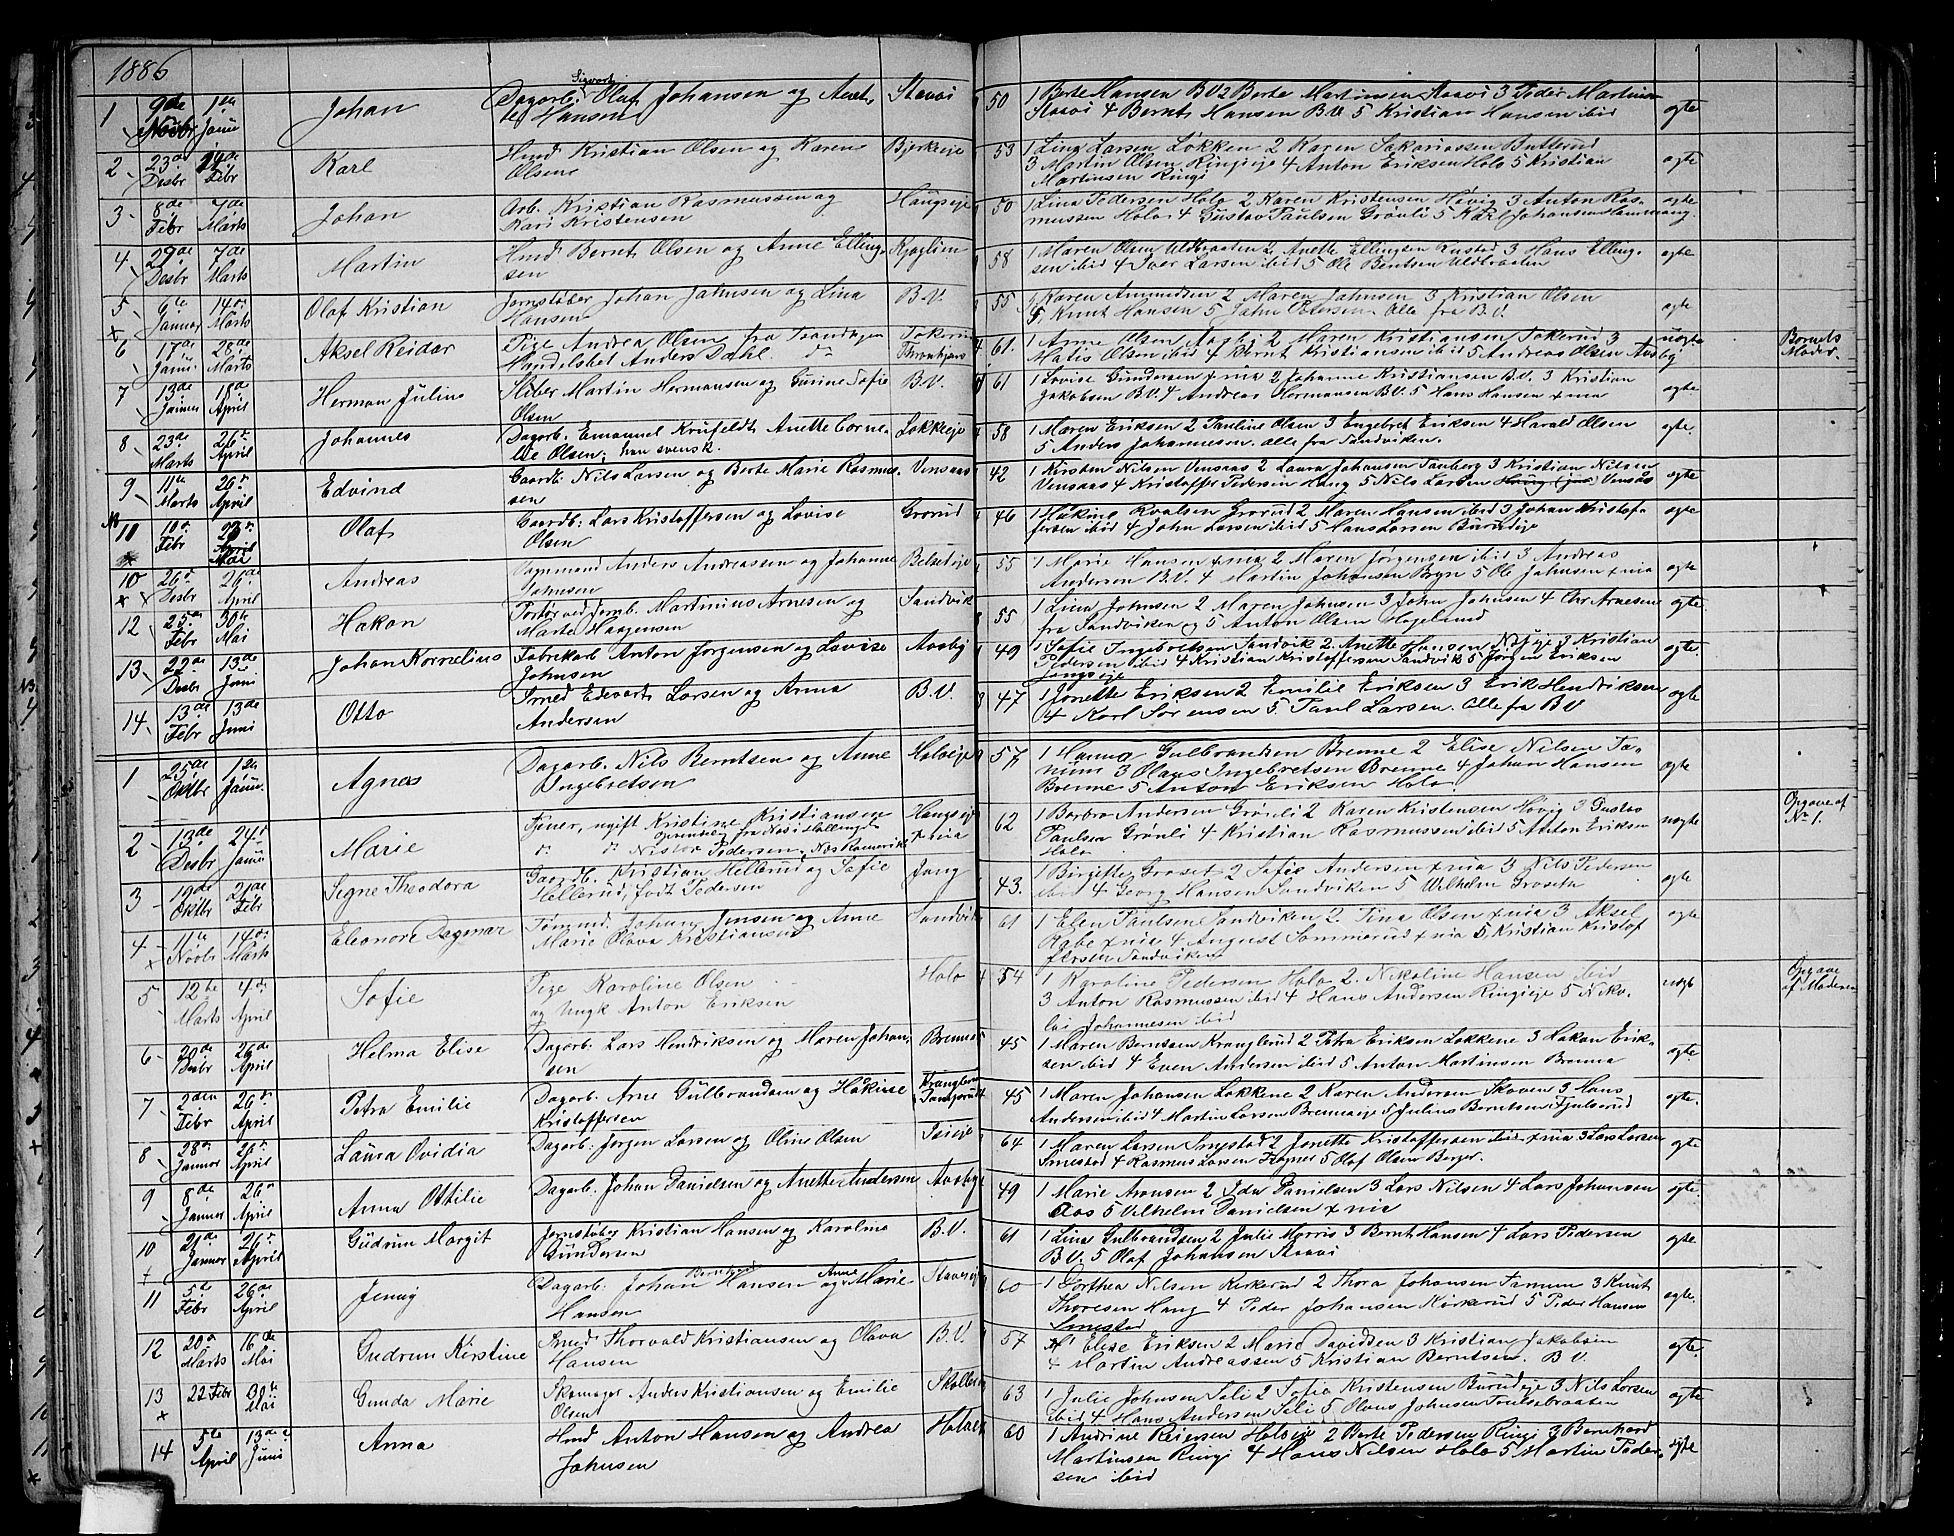 1886
1 9de Novbr 1ste Janu Johan Dagarb. Sigvart Olaf Johansen og Anet- Stavøi 50 1 Berte Hansen B.V. 2 Berte Martinsen Stavøi 3 Peder Martinsen ægte
te Hansen Stavøi 4 Bernt Hansen B.V. 5 Kristian Hansen ibid
2 23de Desbr 24de Febr Karl Hmd Kristian Olsen og Karen Bjerkeeje 53 1 Lina Larsen Løkken 2 Karen Sakariassen Butterud ægte
Olsen 3 Martin Olsen Ringieje 4 Anton Eriksen Holo 5 Kristian
Martinsen Ringi
3 8de Febr 7de Marts Johan Arb. Kristian Rasmussen og Haugseje 50 1 Lina Pedersen Holo 2 Karen Kristensen Høvig 3 Anton Ras- ægte
Kari Kristensen mussen Holo 4 Gustav Paulsen Grønli 5 Karl Johansen
4 27de Desbr 7de Marts Martin Hmd Bernt Olsen og Anne Elling- 58 1 Maren Olsen Uldbraaten 2 Anette Ellingsen Rustad 3 Hans Elling- ægte
sen sen ibid 4 Iver Larsen ibid 5 Ole Bentsen Uldbraaten
5 6te Januar 14de Marts Olaf Kristian Jernstøber Johan Jahnsen og Lina B.V. 55 1 Karen Amundsen 2 Maren Jahnsen 3 Kristian Olsen ægte
Hansen Knut Hansen 5 John Petersen. Alle fra B.V.
6 17de Janu 28de Marts Aksel Reidar Pige Andrea Olsen fra 61. 1 Anne Olsen Aasby 2 Maren Kristiansen Tokerud 3 uægte Barnets
Handelsbet Anders Dahl. do Matis Olsen ibid 4 Bernt Kristiansen ibid 5 Andreas Olsen Aasby Moder.
7 13de Januar 18de April Herman Julius Støber Martin Hermansen og Gusine Sofie B.V. 61 1 Lovise Gundersen 2 Johanne Kristiansen B.V. 3 Kristian ægte
Olsen Jakobsen B.V. 4 Andreas Hermansen B.V. 5 Hans Hansen
8 23de Marts 26de April Johannes Dagarb. Emanuel Krufeldt, Anette Corne- Løkkeeje 58 1 Maren Eriksen 2 Pauline Olsen 3 Engebret Eriksen 4 Harald Olsen ægte.
lie Olsen; han svensk. 5 Anders Johannesen. alle fra Sandviken.
9 11te Marts 26de April Edvind Gaardb. Nils Larsen og Berte Marie Rasmus- Vensaas 42 1 Kirsten Nilsen Vensaas 2 Laura Johansen Tanberg 3 Kristian Nilsen ægte
sen Vensaas 4 Kristoffer Pedersen Haug 5 Nils Larsen Vensaas
11 10de Febr 23de Mai Olaf Gaardb. Lars Kristoffersen og Lovise Grorud 46 1 Hakine Roalsen Grorud 2 Maren Hansen ibid 3 Johan Kristof- ægte
Olsen fersen ibid 4 John Larsen ibid 5 Hans Larsen Burudeje
10 26de Desbr 26de April Andreas Vognmand Anders Andreassen og Johanne Belseteje 55 1 Marie Hansen 2 Maren Jørgensen ibid 3 Andreas ægte
Johnsen Andersen B.V. 4 Martin Johansen Bryn 5 Ole Johnsen
12 25de Febr 30te Mai Hakon Portør ved Jernb. Martinius Arnesen og Sandvik 55 1 Lina Johnsen 2 Maren Johnsen 3 John Johnsen 4 Chr. Arnesen ægte.
Marte Haagensen fra Sandviken og 5 Anton Olsen Hogelund
13. 22de Desbr 13de Juni Johan Kornelius Fabrikarb. Anton Jørgensen og Lovise Aasby 49 1 Sofie Ingebretsen Sandvik 2. Anette Hansen 3 Kristian ægte.
Johnsen Pedersen ibid 4 Kristian Kristoffersen Sandvik 5 Jørgen Eriksen
Jongseje
14. 13de Febr 13de Juni Otto Smed Edvart Larsen og Anna B.V. 47 1 Jonette Eriksen 2 Emilie Eriksen 3 Erik Hendriksen ægte
Andersen 4 Karl Sørensen 5. Paul Larsen. Alle fra B.V.
1 25de Oktbr 1ste Janu. Agnes Dagarb. Nils Berntsen og Anne Holoeje 57 1 Hanna Gulbrandsen Brenne 2 Elise Nilsen Ta- ægte
Ingebretsen num 3 Olaus Ingebretsen Brenne 4 Johan Hansen
Brenne 5 Anton Eriksen Holo
2 13de Desbr 24de Janu Marie Tjener, ugift Kristine Kristiansen Haugseje 62 1 Barbro Andersen Grønli 2 Karen Kristensen Høvig 3 Gustav uægte Opgave af
do do Nistor Pedersen, Paulsen Grønli 4 Kristian Rasmussen ibid 5 Anton Eriksen No 1.
Holo
3 19de Oktbr 21de Febr Signe Theodora Gaardb. Kristian Hellerud og Sofie Jong 43. 1 Birgitte Groset 2 Sofie Andersen 3 Nils Pedersen ægte
Hellerud, født Pedersen ibid 4 Georg Hansen Sandviken 5 Vilhelm Groseth
4 11te Novbr 14de Marts Eleonore Dagmar Tømmd. Johan Jensen og Anne Sandvik 61 1 Elen Paulsen Sandviken 2. Tina Olsen 3 Aksel ægte
Marie Olava Kristiansen Rabe 4 August Sommerud 5. Kristian Kristof
fersen Sandviken
5 12te Marts 4de April Sofie Pige Karoline Olsen Holo 54 1 Karoline Pedersen Holo 2. Nikoline Hansen ibid uægt Opgave
og Ungk Anton Eriksen 3 Anton Rasmussen ibid 4 Hans Andersen Ringieje 5 Niko- af Moderen
lai Johannesen ibid
6 30de Desbr 26de April Helma Elise Dagarb. Lars Hendriksen og Maren Johan- Brenne 45 1 Maren Berntsen Kranglerud 2 Petra Eriksen Løkkene 3 Hakon Erik- ægte
sen sen ibid 4 Even Andersen ibid 5 Anton Martinsen Brenna
7 2den Febr 26de April Petra Emilie Dagarb. Arne Gulbrandsen og Hakine Kranglerud 45 1 Maren Johansen Løkkene 2 Karen Andersen Skoven 3 Hans ægte.
Kristoffersen Andersen ibid 4 Martin Larsen Brenneeje 5 Julius Berntsen Fjulsrud
8 28de Januar 26de April Laura Ovidia Dagarb. Jørgen Larsen og Oline Olsen Isieje 64 1 Maren Larsen Smestad 2 Jonette Kristoffersen 3 Lars Larsen ægte
Smestad 4 Rasmus Larsen Fogner 5 Olaf Olsen Berger.
9 8de Januar 26de April Anna Ottilie Dagarb. Johan Danielsen og Anette Andersen Aasby 49 1 Marie Aronsen 2 Ida Danielsen 3 Lars Nilsen 4 Lars Johansen ægte.
Aas 5 Vilhelm Danielsen
10 21de Januar 26de April Gudrun Margit Jernstøber Kristian Hansen og Karoline B.V. 61 1 Lina Gulbrandsen 2 Julie Morris 3 Bernt Hansen 4 Lars Pedersen ægte
Gundersen B.V. 5 Olaf Johansen Stavøi
11 5te Febr 26de April Jenny Dagarb. Johan Berntsen Hansen og Anne Marie 60 1 Dorthea Nilsen Kirkerud 2 Thora Johansen Tanum 3 Knut ægte.
Hansen Thoresen Haug 4 Peder Johansen Kirkerud 5 Peder Hansen
Smestad
12 20de Marts 16de Mai Gudrun Kirstine Smed Thorvald Kristiansen og Olava B.V. 57 1 Elise Eriksen 2 Marie Davidsen 3 Kristian Jakobsen ægte.
Hansen 4 Martin Andreassen 5 Kristian Berntsen. B.V.
13 22 Febr 30te Mai Gunda Marie Skomager Anders Kristiansen og Emilie 63 1 Julie Johnsen Seli 2 Sofie Kristensen Burudeje 3 Nils Larsen ægte
Olsen ibid 4 Hans Andersen Seli 5 Olaus Johnsen
14 5te April 13de Juni Anna Hmd Anton Hansen og Andrea 60 1 Andrine Reiersen Holoeje 2 Berte Pedersen Ringi 3 Bernhard ægte
Johnsen Martinsen Ringi 4 Hans Nilsen Holo 5 Martin Peder-
sen ibid